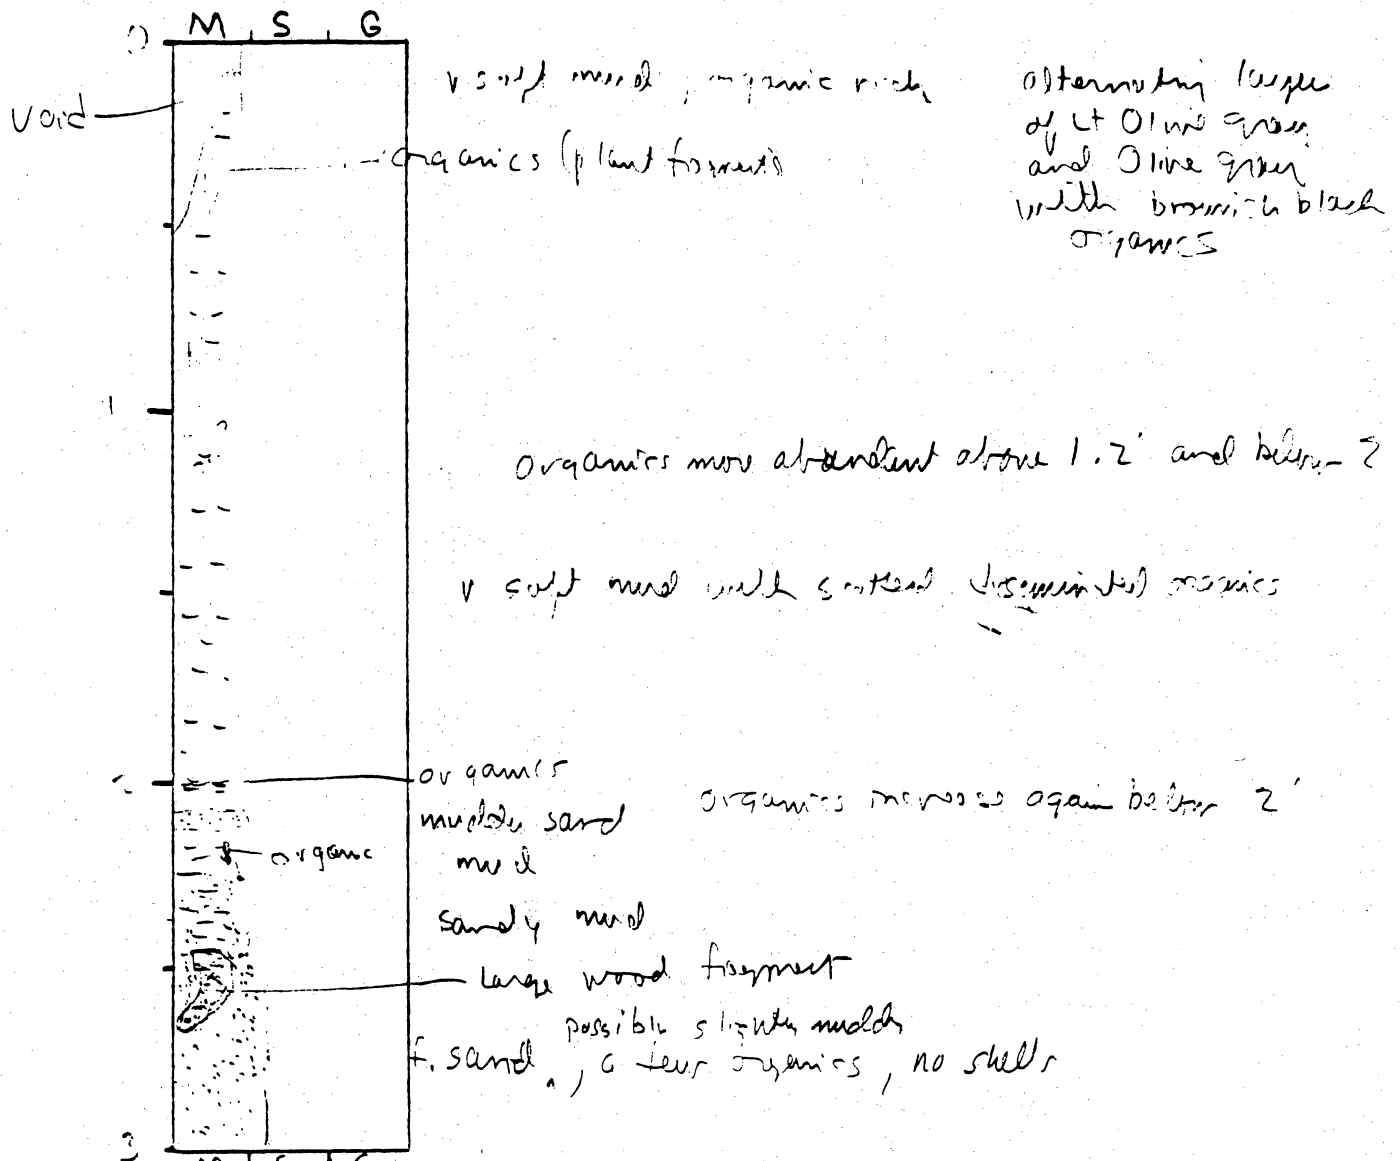 M S G
0
v soft mud, organic rich
alternating layers
of Lt Olive gray
and Olive gray
with brownish black
organics
Void
organics (plant fragments)
1
organics more abundant above 1.2' and below 2
v soft mud with scattered disseminated organics
2
organics
organics increase again below 2'
muddy sand
organic
mud
sandy mud
Large wood fragment
possibly slightly muddy
f. sand ^, a few organics, no shells
3